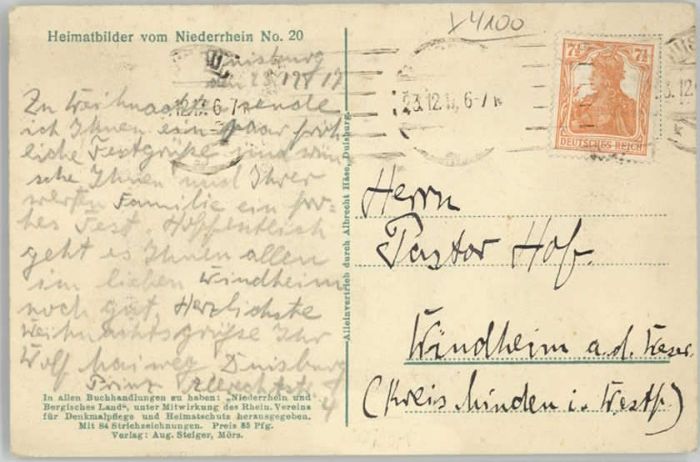 x 4100
Heimatbilder vom Niederrhein No. 20
Duisburg
den 23 12 17
Zu Weihnachten sende
ich Ihnen ein paar fröh
liche Festgrüße und wün
sche Ihnen und Ihrer
werten Familie ein fro=
hes Fest Hoffentlich
geht es Ihnen allen
im lieben Windheim
noch gut, Herzlichste
Weihnachtsgrüße Ihr
Wolf Duisburg
Prinz Albrechtstr
4
In allen Buchhandlungen zu haben: „Niederrhein und
Bergisches Land“, unter Mitwirkung des Rhein. Vereins
für Denkmalpflege und Heimatschutz herausgegeben.
Mit 84 Strichzeichnungen. Preis 85 Pfg.
Verlag: Aug. Steiger, Mörs.
Alleinvertrieb durch Albrecht Häse, Duisburg.
.12.17. 6-7 N
23.12.17. 6-7 N
3.12.
7½ 7½
DEUTSCHES REICH
Herrn
Pastor Hof.
Windheim a.d. Weser.
(Kreis Minden i. Westf.)